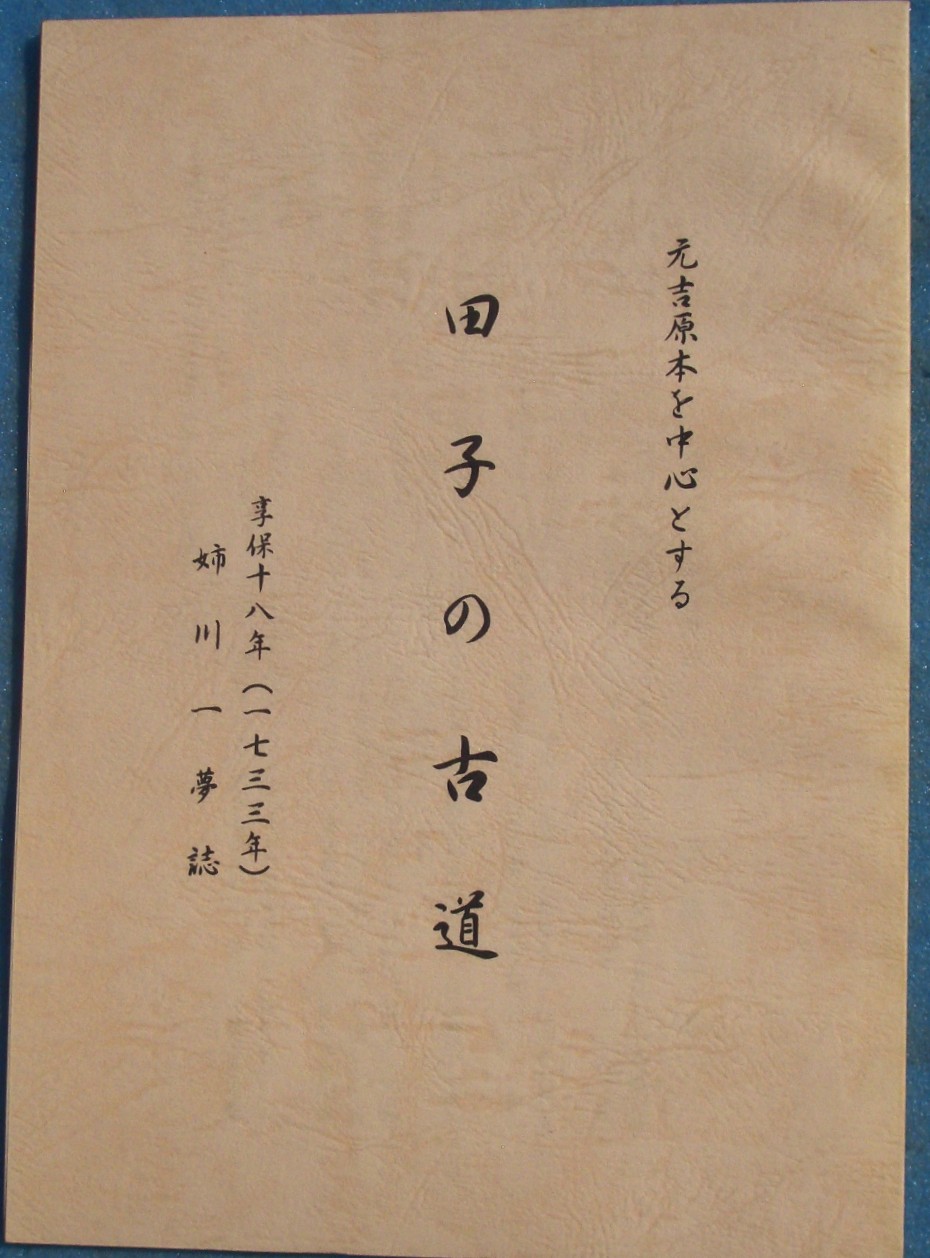 元吉原本を中心とする
田子の古道
享保十八年(一七三三年)
姉川一夢誌